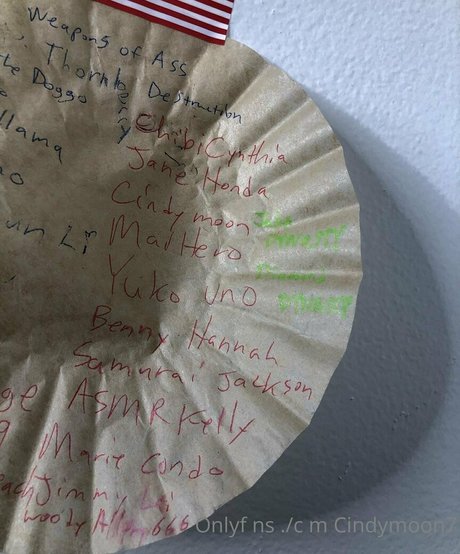 Weapons of Ass
Thornbe Destruction
the Doggo
llama
Chibi Cynthia
Jane Honda
Cindymoon
Mai Hero
un Li
Yuko Uno
Benny Hannah
Samurai Jackson
ge ASMR Kelly
9 Marie Condo
each Jimmy Lai
Woody Allen 666
Onlyf ns ./c m Cindymoon/